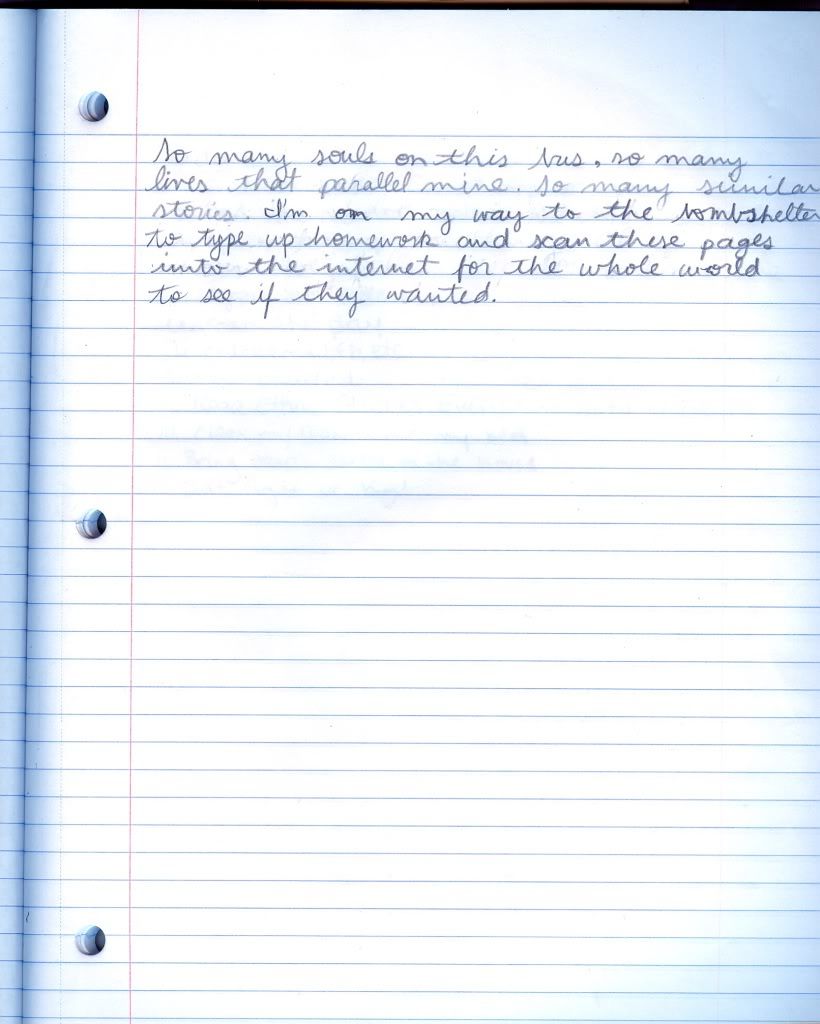 So many souls on this bus, so many
lives that parallel mine. So many similar
stories. I'm on my way to the bombshelter
to type up homework and scan these pages
into the internet for the whole world
to see if they wanted.